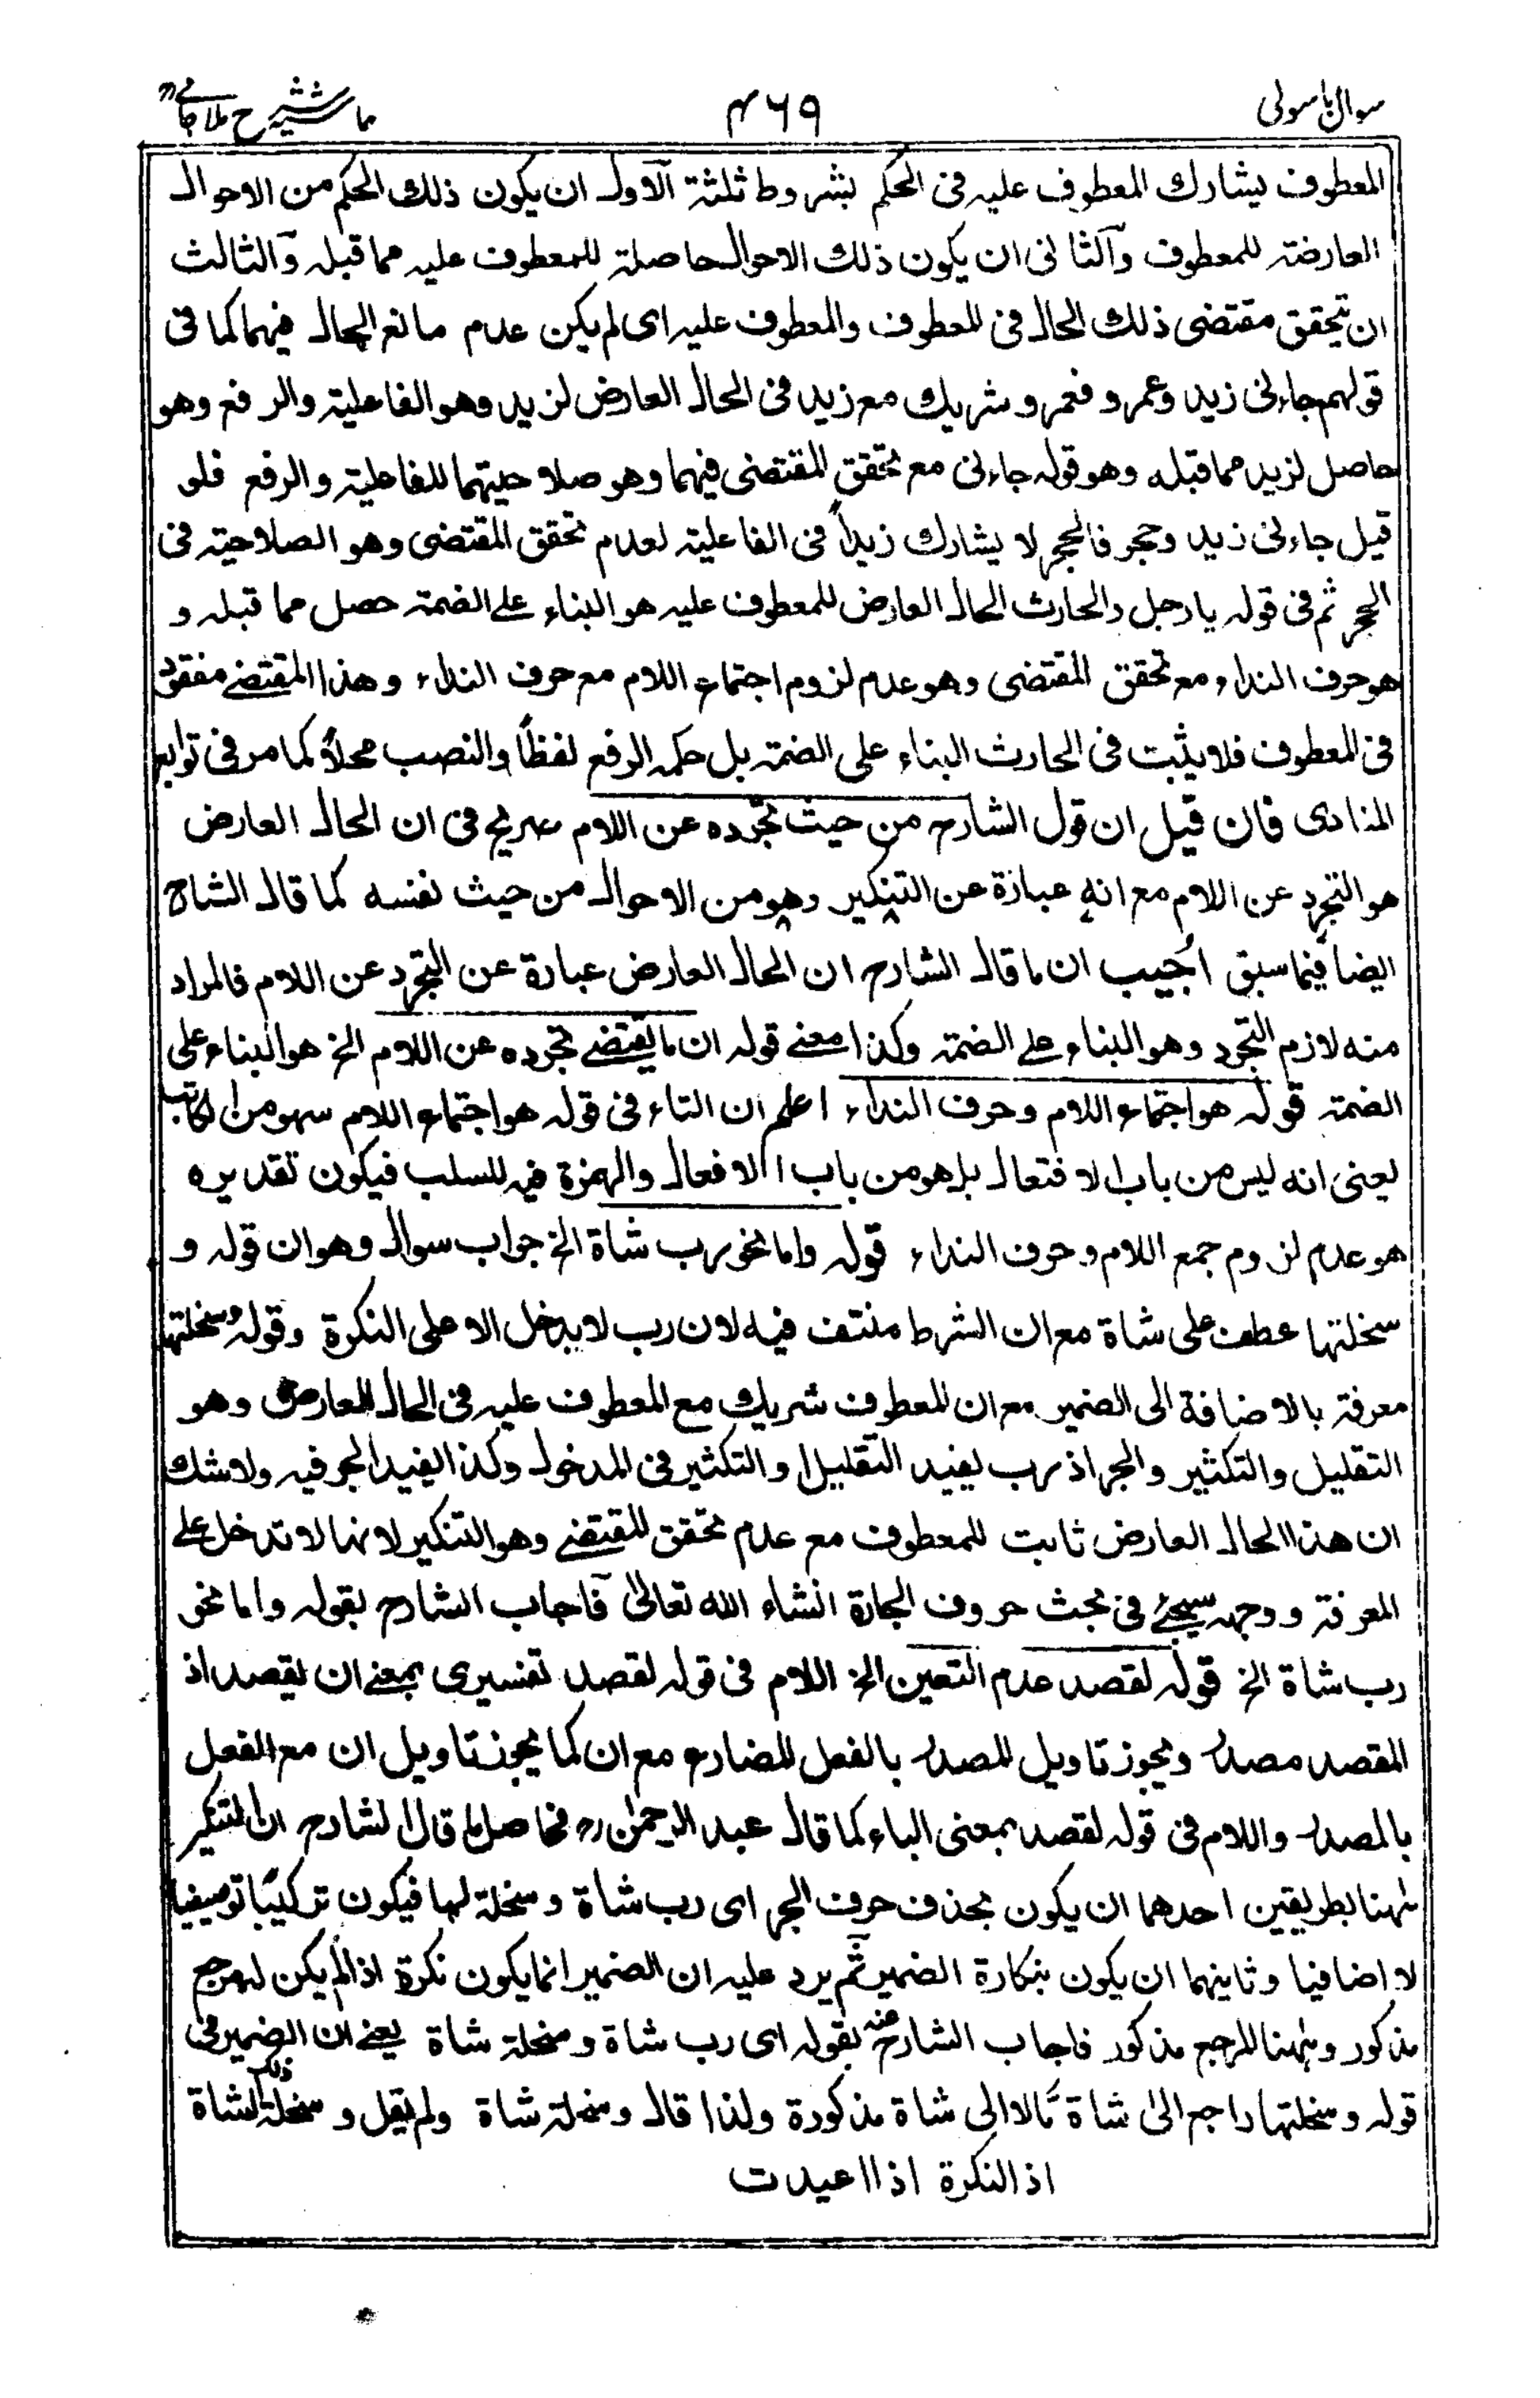 سوال باسولی
۴۶۹
حاشیہ شرح ملا جامی
المعطوف یشارك المعطوف علیہ فی الحکم بشروط ثلثة الاول ان یکون ذلك الحکم من الاحوال
العارضة للمعطوف والثانی ان یکون ذلك الاحوال حاصلة للمعطوف علیہ مما قبلہ والثالث
ان تحقق مقتضی ذلك الحال فی المعطوف والمعطوف علیہ ای لم یکن عدم مانع الحال فیهما کما فی
قولهم جاءنی زید وعمرو فعمرو شریك مع زید فی الحال العارض لزید وهو الفاعلیة والرفع وهو
حاصل لزید مما قبلہ وهو قولہ جاءنی مع تحقق المقتضی فیهما وهو صلاحیتهما للفاعلیة والرفع فلو
قیل جاءنی زید وحجر فالحجر لا یشارك زیداً فی الفاعلیة لعدم تحقق المقتضی وهو الصلاحیة فی
الحجر ثم فی قولہ یا رجل والحارث الحال العارض للمعطوف علیہ هو البناء علی الضمة حصل مما قبلہ و
هو حرف النداء ومع تحقق المقتضی وهو عدم لزوم اجتماع اللام مع حرف النداء وهذا المقتضے مفقود
فی المعطوف فلا یثبت فی الحارث البناء علی الضمة بل حکمہ الرفع لفظاً والنصب محلاً کما مر فی توابع
المنادی فان قیل ان قول الشارح من حیث تجرده عن اللام صریح فی ان الحال العارض
هو التجرد عن اللام مع انه عبارة عن التنکیر وهو من الاحوال من حیث نفسه کما قال الشارح
ایضا فیما سبق اُجیب ان ما قال الشارح ان الحال العارض عبارة عن التجرد عن اللام فالمراد
منه لازم التجرد وهو البناء علی الضمة وکذا معنے قولہ ان ما یقتضے تجرده عن اللام الخ هو البناء علی
الضمة قولہ هو اجتماع اللام وحرف النداء اعلم ان التاء فی قولہ هو اجتماع اللام سهو من الکاتب
یعنی انه لیس من باب الافتعال بل هو من باب الافعال والهمزة فیہ للسلب فیکون تقدیره
هو عدم لزوم جمع اللام وحرف النداء قولہ واما نحو رب شاة الخ جواب سوال وهو ان قولہ و
سخلتها عطف علی شاة مع ان الشرط منتف فیه لان رب لا یدخل الا علی النکرة وقولہ وسخلتها
معرفة بالاضافة الی الضمیر مع ان المعطوف شریك مع المعطوف علیہ فی الحال العارض وهو
التقلیل والتکثیر والجر اذ رب یفید التقلیل والتکثیر فی المدخول وکذا یفید الجر فیہ ولا شك
ان هذا الحال العارض ثابت للمعطوف مع عدم تحقق المقتضے وهو التنکیر لانها لا تدخل علی
المعرفة ووجهہ سیجئ فی بحث حروف الجارة انشاء الله تعالیٰ فاجاب الشارح بقولہ واما نحو
رب شاة الخ قولہ لقصد عدم التعین الخ اللام فی قولہ لقصد تفسیری بمعنے ان یقصد اذ
القصد مصدر ویجوز تاویل المصدر بالفعل المضارع مع ان کما یجوز تاویل ان مع الفعل
بالمصدر واللام فی قولہ لقصد بمعنی الباء کما قال عبد الرحمٰن رح فحاصل ما قال الشارح ان التنکیر
ههنا بطریقین احدهما ان یکون بحذف حرف الجر ای رب شاة وسخلة لها فیکون ترکیبًا توصیفیا
لا اضافیا وثانیهما ان یکون بنکارة الضمیر ثم یرد علیہ ان الضمیر انما یکون نکرة اذا لم یکن لہ مرجع
مذکور وههنا المرجع مذکور فاجاب الشارح عنہ بقولہ ای رب شاة وسخلة شاة یعنے ان الضمیر فی
قولہ وسخلتها راجع الیٰ شاة ما لا الی شاة مذکورة ولذا قال وسخلة شاة ولم یقل وسخلة ذلك الشاة
اذ النکرة اذا اعیدت